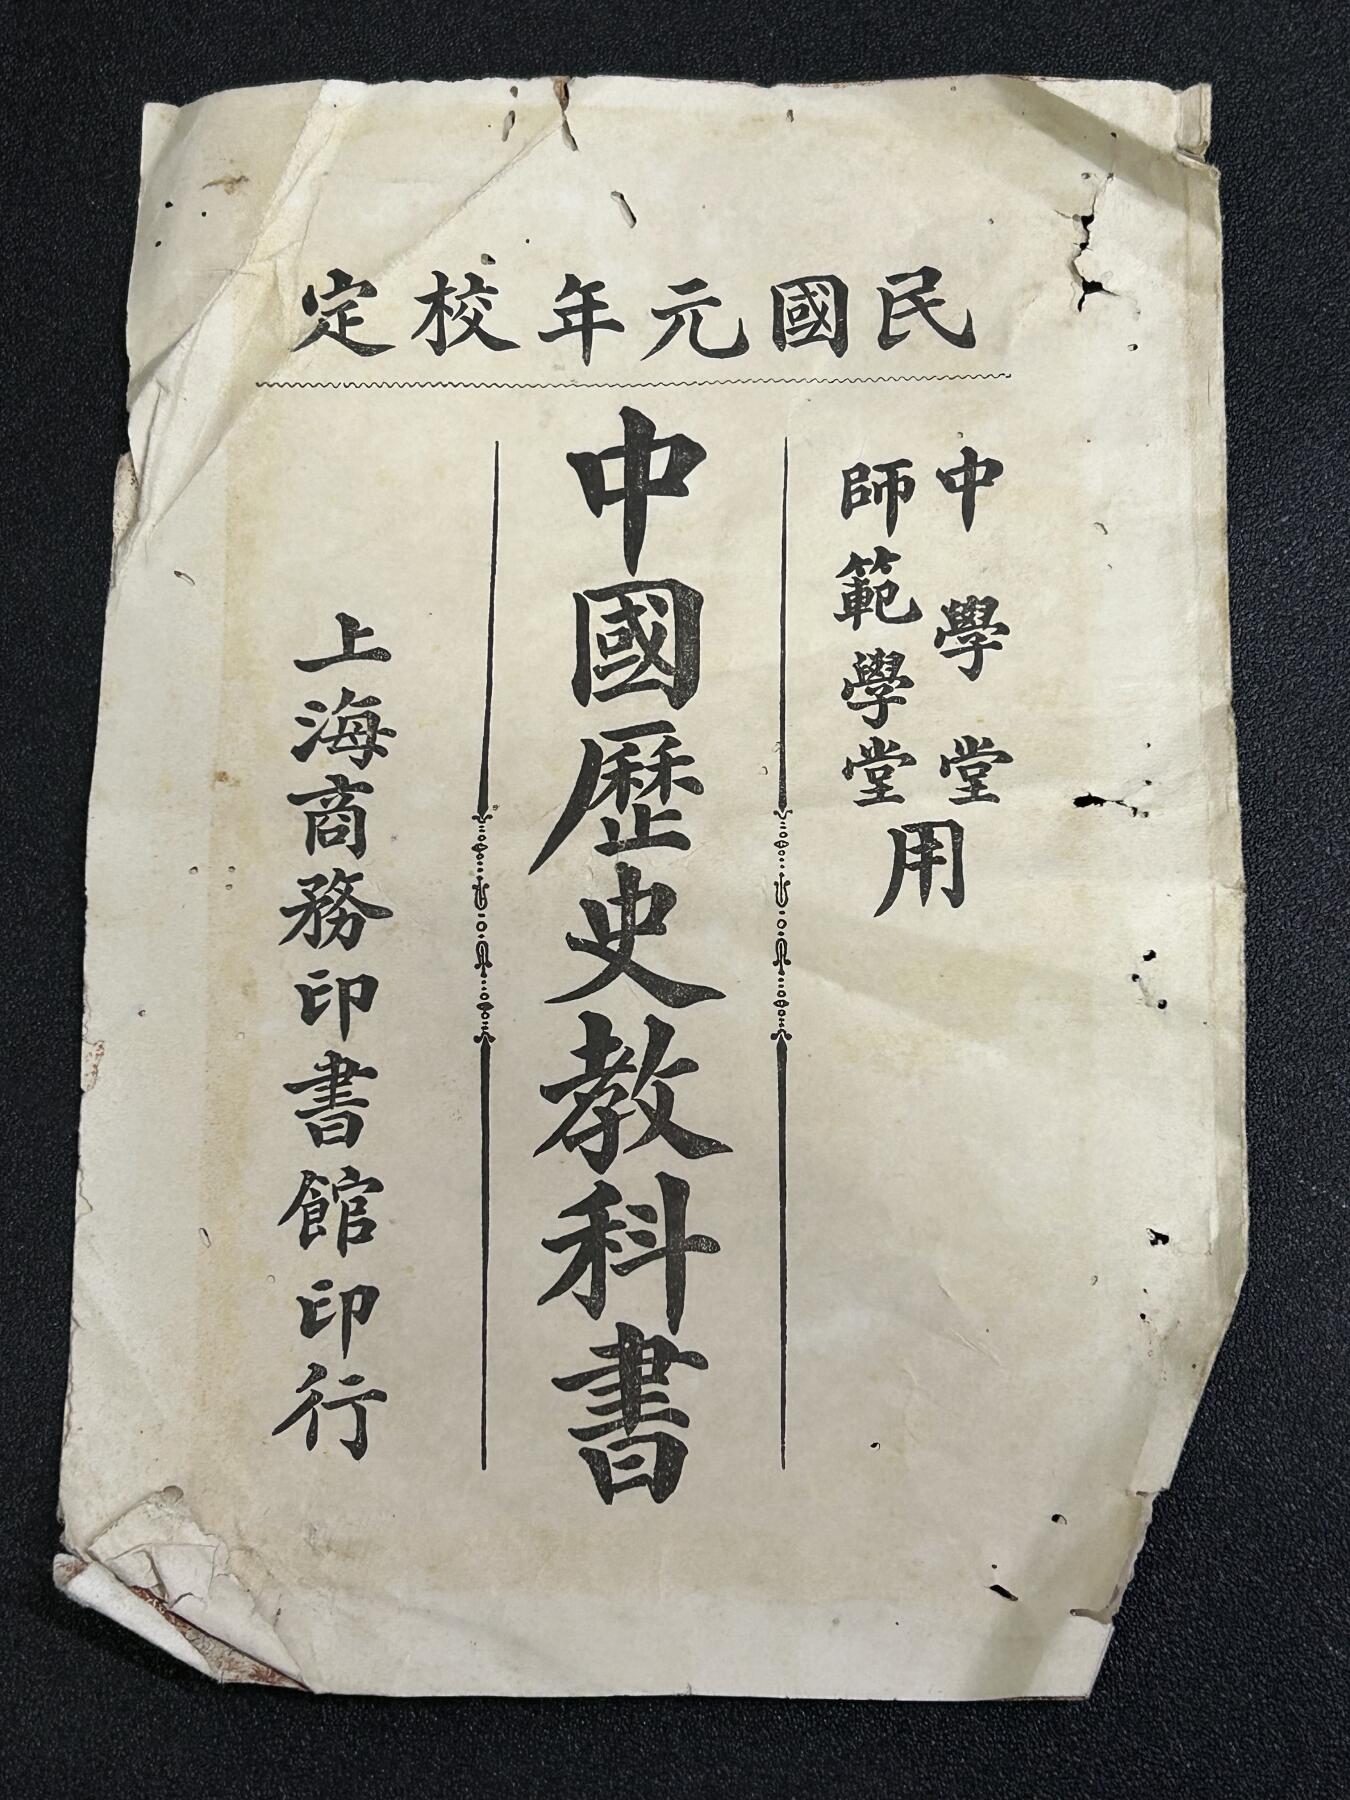 民國元年校定
中學堂
師範學堂
用
中國歷史教科書
上海商務印書館印行